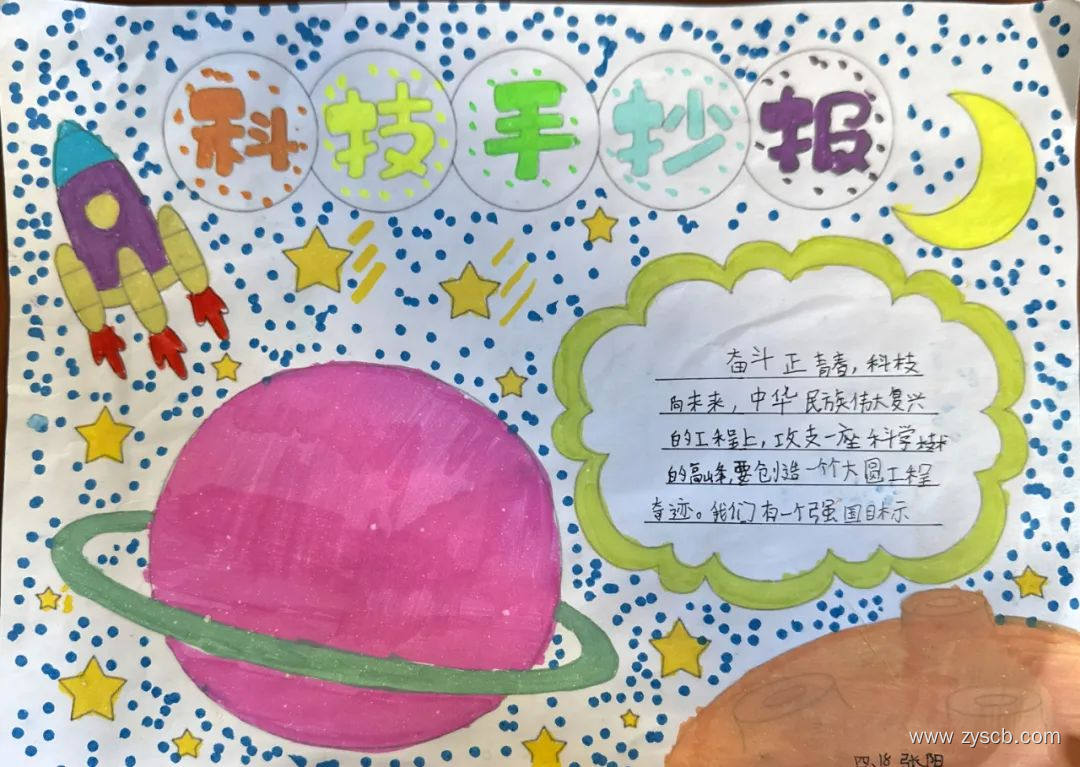 科技手抄报
奋斗正青春,科技
向未来,中华民族伟大复兴
的工程上,攻支一座科学技术
的高峰,要创造一个个大圆工程
奇迹。我们有一个强国目标示
www.zyscb.com
四、18 张阳